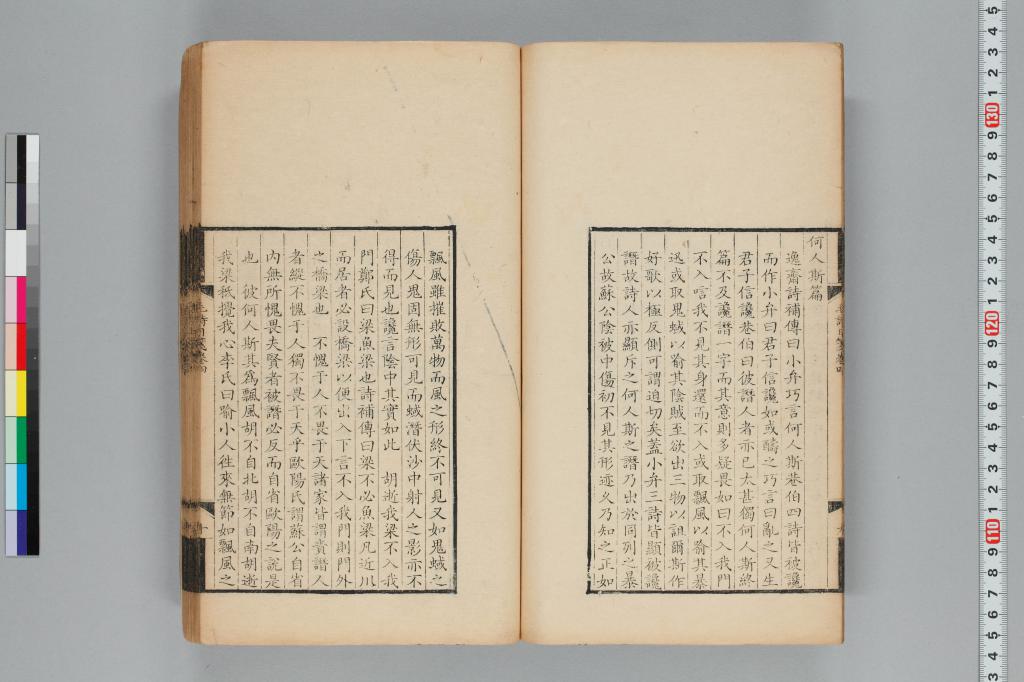 何人斯篇
逸齋詩補傳曰小弁巧言何人斯巷伯四詩皆被讒
而作小弁曰君子信讒如或醻之巧言曰亂之又生
君子信讒巷伯曰彼譖人者亦已太甚獨何人斯終
篇不及讒譖一字而其意則多疑畏如曰不入我門
不入唁我不見其身還而不入或取飄風以喻其暴
迅或取鬼蜮以喻其陰賊至欲出三物以詛爾斯作
好歌以極反側可謂迫切矣蓋小弁三詩皆顯被讒
譖故詩人亦顯斥之何人斯之譖乃出於同列之暴
公故蘇公陰被中傷初不見其形迹乂乃知之正如
飄風雖摧敗萬物而風之形終不可見又如鬼蜮之
傷人鬼固無形可見而蜮潛伏沙中射人之影亦不
得而見也讒言陰中其實如此　胡逝我梁不入我
門鄭氏曰梁魚梁也詩補傳曰梁不必魚梁凡近川
而居者必設橋梁以便出入下言不入我門則門外
之橋梁也　不愧于人不畏于天諸家皆謂責譖人
者縱不愧于人獨不畏于天乎歐陽氏謂蘇公自省
內無所愧畏夫賢者被譖必反而自省歐陽之說是
也　彼何人斯其為飄風胡不自北胡不自南胡逝
我梁秖攪我心李氏曰喻小人往來無節如飄風之